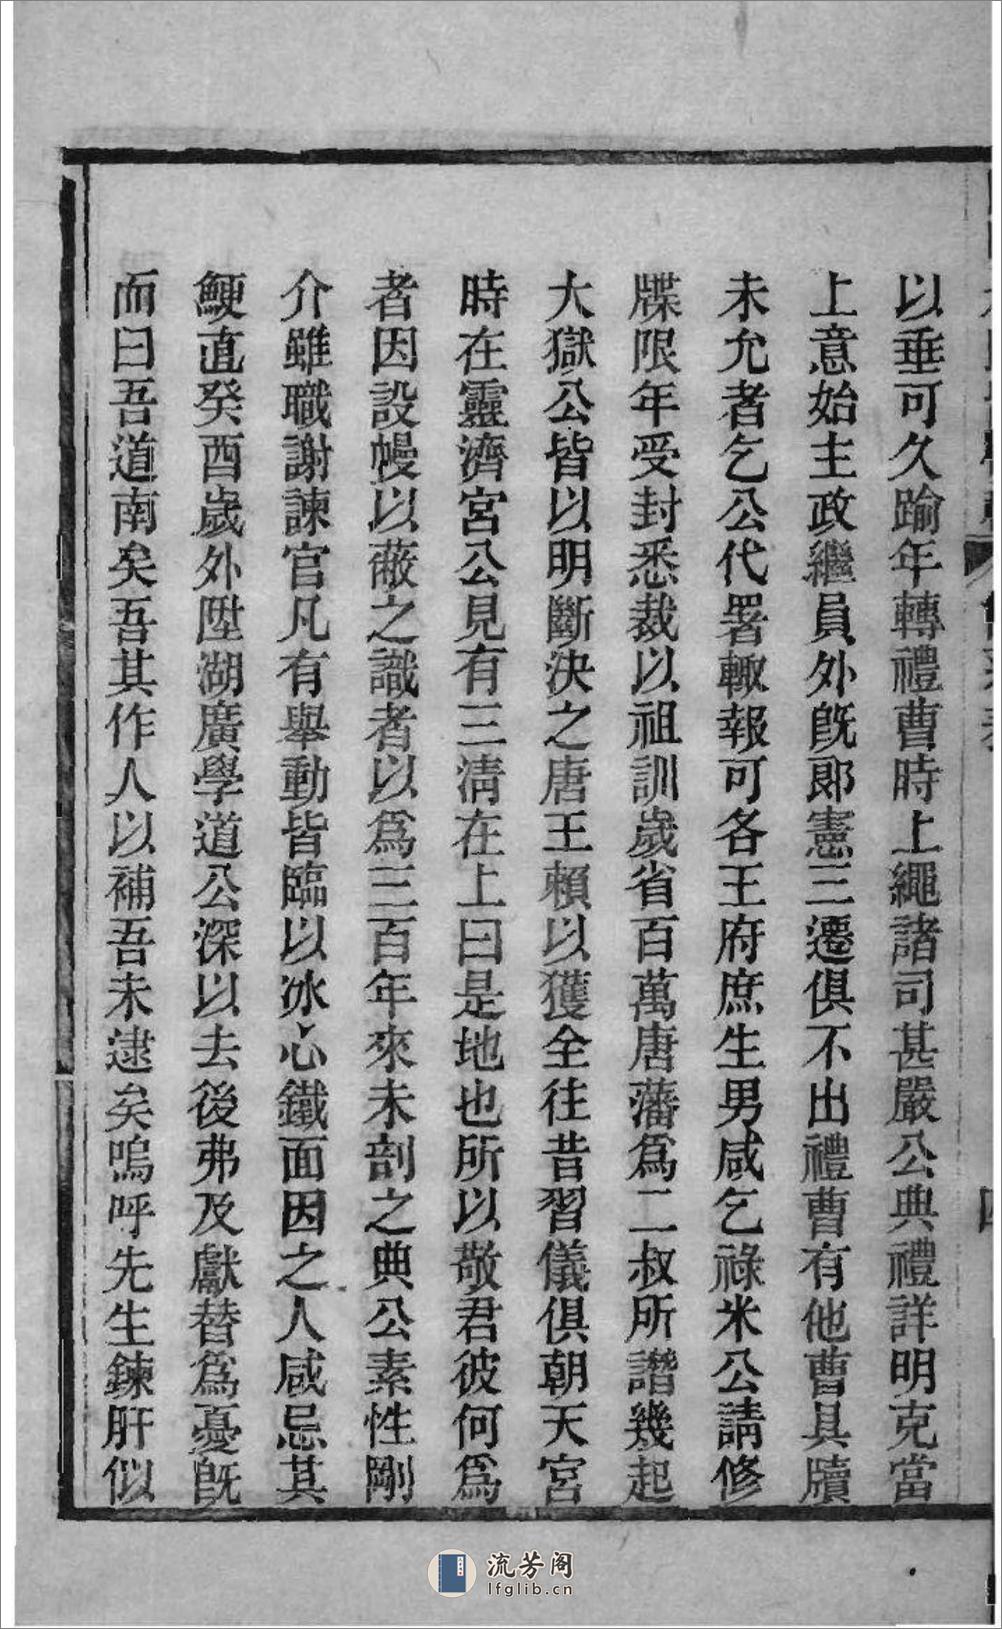 以垂可久踰年轉禮曹時上繩諸司甚嚴公典禮詳明克當
上意始主政繼員外旣郞憲三遷俱不出禮曹有他曹具牘
未允者乞公代署輙報可各王府庶生男咸乞祿米公請修
牒限年受封悉裁以祖訓歲省百萬唐藩爲二叔所譖幾起
大獄公皆以明斷決之唐王賴以獲全往昔習儀俱朝天宮
時在靈濟宮公見有三清在上曰是地也所以敬君彼何爲
者因設幔以蔽之識者以爲三百年來未剖之典公素性剛
介雖職謝諫官凡有舉動皆臨以冰心鐵面因之人咸忌其
鯁直癸酉歲外陞湖廣學道公深以去後弗及獻替爲憂旣
而曰吾道南矣吾其作人以補吾未逮矣嗚呼先生鍊肝似
四
流芳阁
lfglib.cn